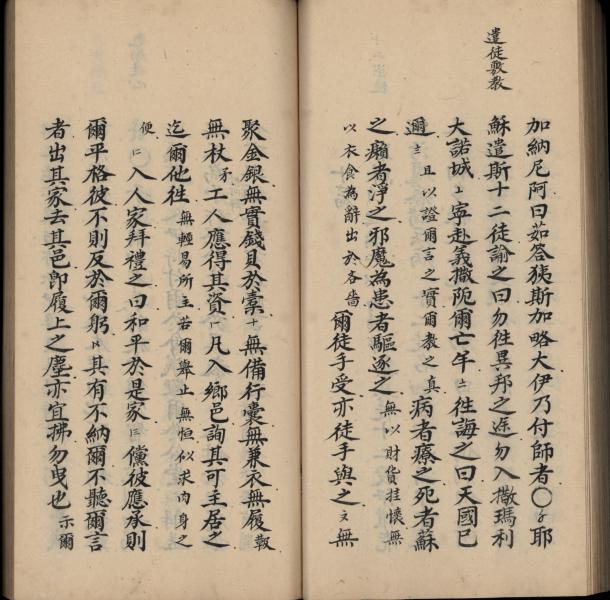 遣徒敷教
加納尼阿曰茹答狹斯加略大伊乃付師者〇子耶
穌遣斯十二徒諭之曰勿徃異邦之途勿入撒瑪利
大諾城上寧赴義撒阨爾亡羊二徃誨之曰天國已
邇且以證爾言之實爾教之真病者療之死者蘇
之癩者淨之邪魔為患者驅逐之無以財貨挂懷無
以衣食為辭出於吝嗇爾徒手受亦徒手與之文無
聚金銀無實錢貝於橐十無備行囊無兼衣無履鞁
無杖矛工人應得其資一凡入鄉邑詢其可主居之
迄爾他徃無輕易所主若爾舉止無恒似求肉身之
便二入人家拜禮之曰和平於是家三儻彼應承則
爾平格彼不則反於爾躬其有不納爾不聽爾言
者出其家去其邑卽履上之塵亦宜拂勿曳也示爾